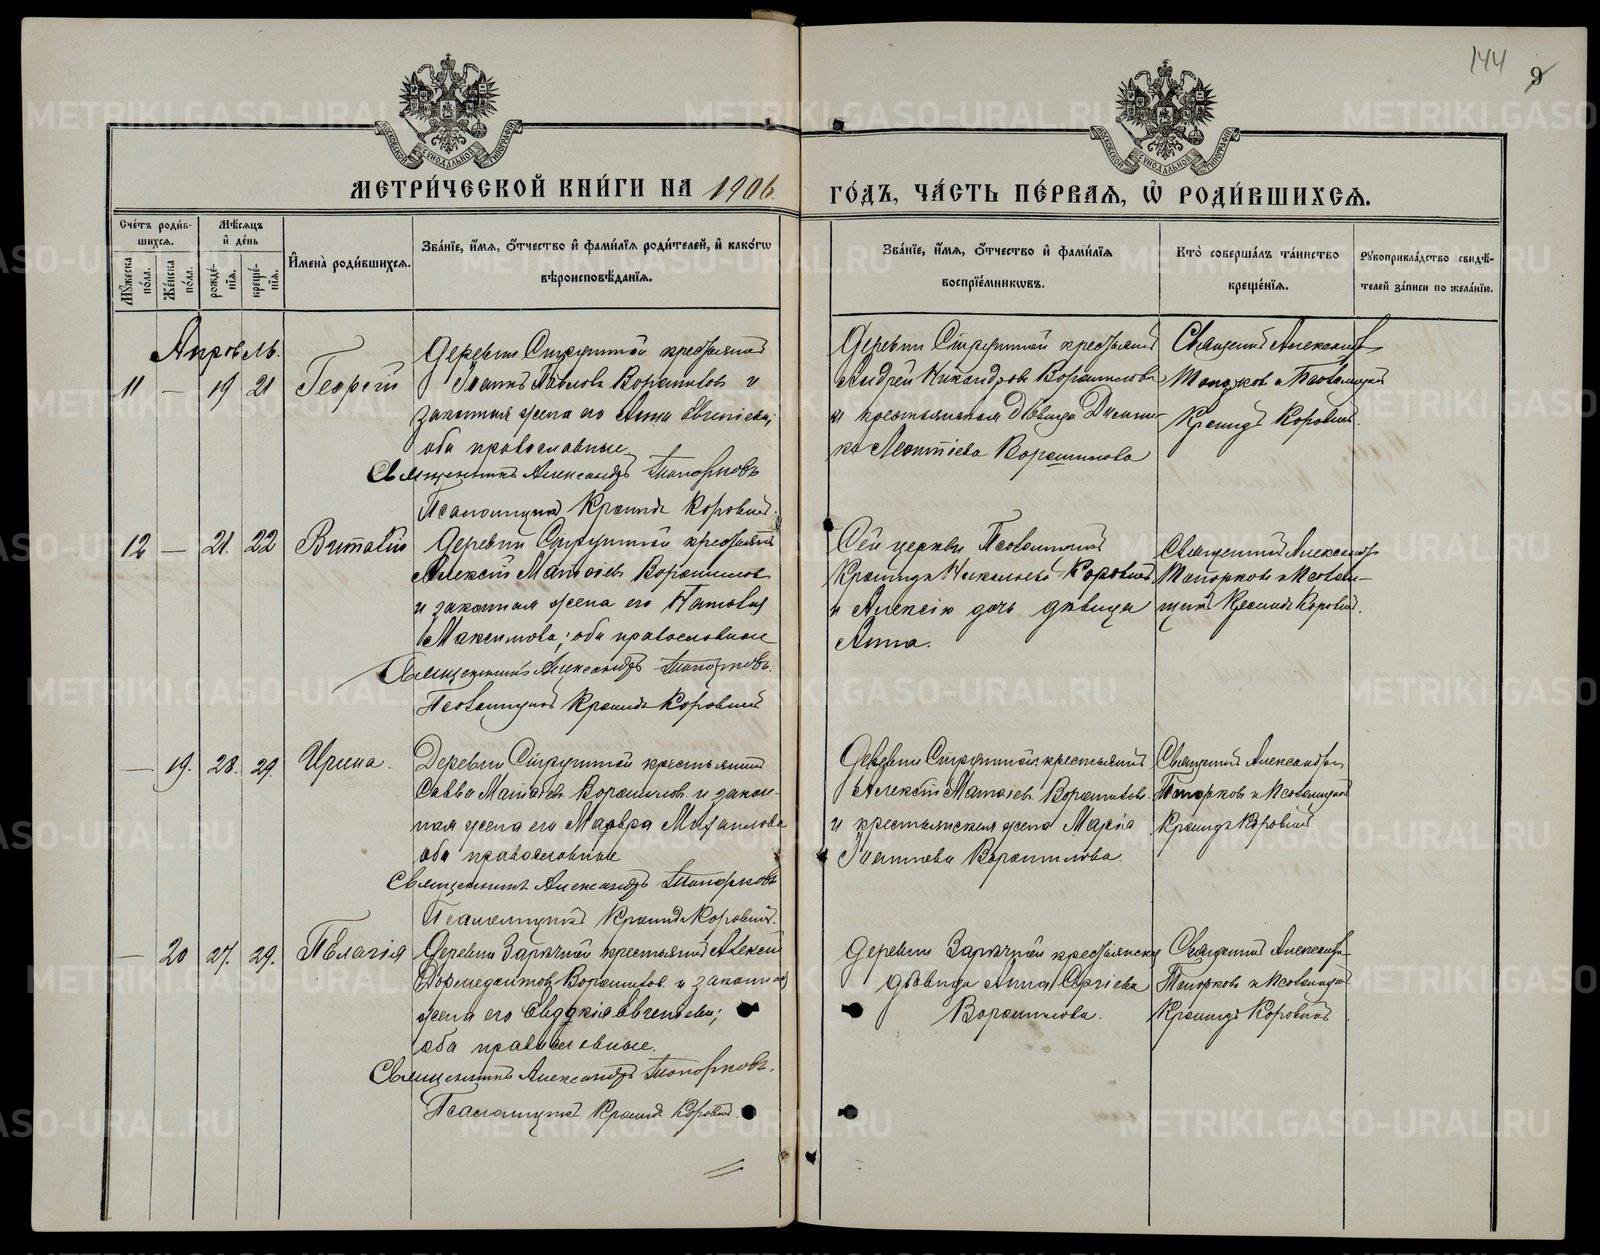 144 9
МЕТРИ́ЧЕСКОЙ КНИ́ГИ НА 1906
ГО́ДЪ, ЧА́СТЬ ПЕ́РВАЯ, Ѡ҆ РОДИ́ВШИХСѦ.
Сче́тъ роди́в-
шихся.
Мѣ́сяцъ
и҆ де́нь
И҆мена̀ роди́вшихся.
Зва́нїе, и҆́мя, ѻ҆́тчество и҆ фами́лїя роди́телей, и҆ како́гѡ
вѣроисповѣ́данїя.
Зва́нїе, и҆́мя, ѻ҆́тчество и҆ фами́лїя
воспрїе́мникѡвъ.
Кто̀ соверша́лъ та́инство
креще́нїя.
Рꙋкоприкла́дство свидѣ́-
телей за́писи по жела́нїю.
Мꙋ́жеска по́ла.
Же́нска по́ла.
рожде́-нїя.
креще́-нїя.
Апрѣль.
11 — 19 21 Георгій
Деревни Струтной крестьянин
Павлов Ворошилов и
законная жена его Анна Евгениева;
оба православные
Священникъ Александръ Топорковъ
Псаломщикъ Кронидъ Коровин.
Деревни Струтной крестьянин
Андрей Никандров Ворошилов
и крестьянская дѣвица
Леонтіева Ворошилова
Священник Александр
Топорков и Псаломщик
Кронидъ Коровин.
12 — 21. 22 Виталій
Деревни Струтной крестьянин
Алексѣй Матвѣев Ворошилов
и законная жена его Наталия
Максимова; оба православные
Священникъ Александръ Топорковъ.
Псаломщикъ Кронидъ Коровин
Сей церкви Псаломщик
Кронидъ Коровин
и Алексію дочь дѣвица
Анна.
Священник Александр
Топорков и Псалом-
щик Кронидъ Коровин.
— 19. 28. 29. Ирина.
Деревни Струтной крестьянин
Савва Матвѣев Ворошилов и закон-
ная жена его Мавра Михаилова
оба православные
Священникъ Александръ Топорковъ
Псаломщикъ Кронидъ Коровин.
Деревни Струтной крестьянин
Алексѣй Матвѣев Ворошилов
и крестьянская жена Марія
Игнатиева Ворошилова.
Священник Александръ
Топорков и Псаломщик
Кронидъ Коровин
— 20 27. 29. Пелагія
Деревни Зарѣчной крестьянин Алексѣй
Ворошилов и законная
жена его Евдокія Евгениева;
оба православные.
Священникъ Александръ Топорковъ.
Псаломщикъ Кронидъ Коровин.
Деревни Зарѣчной крестьянская
дѣвица Анна Сергіева
Ворошилова.
Священник Александр
Топорков и Псаломщик
Кронидъ Коровин
METRIKI.GASO-URAL.RU